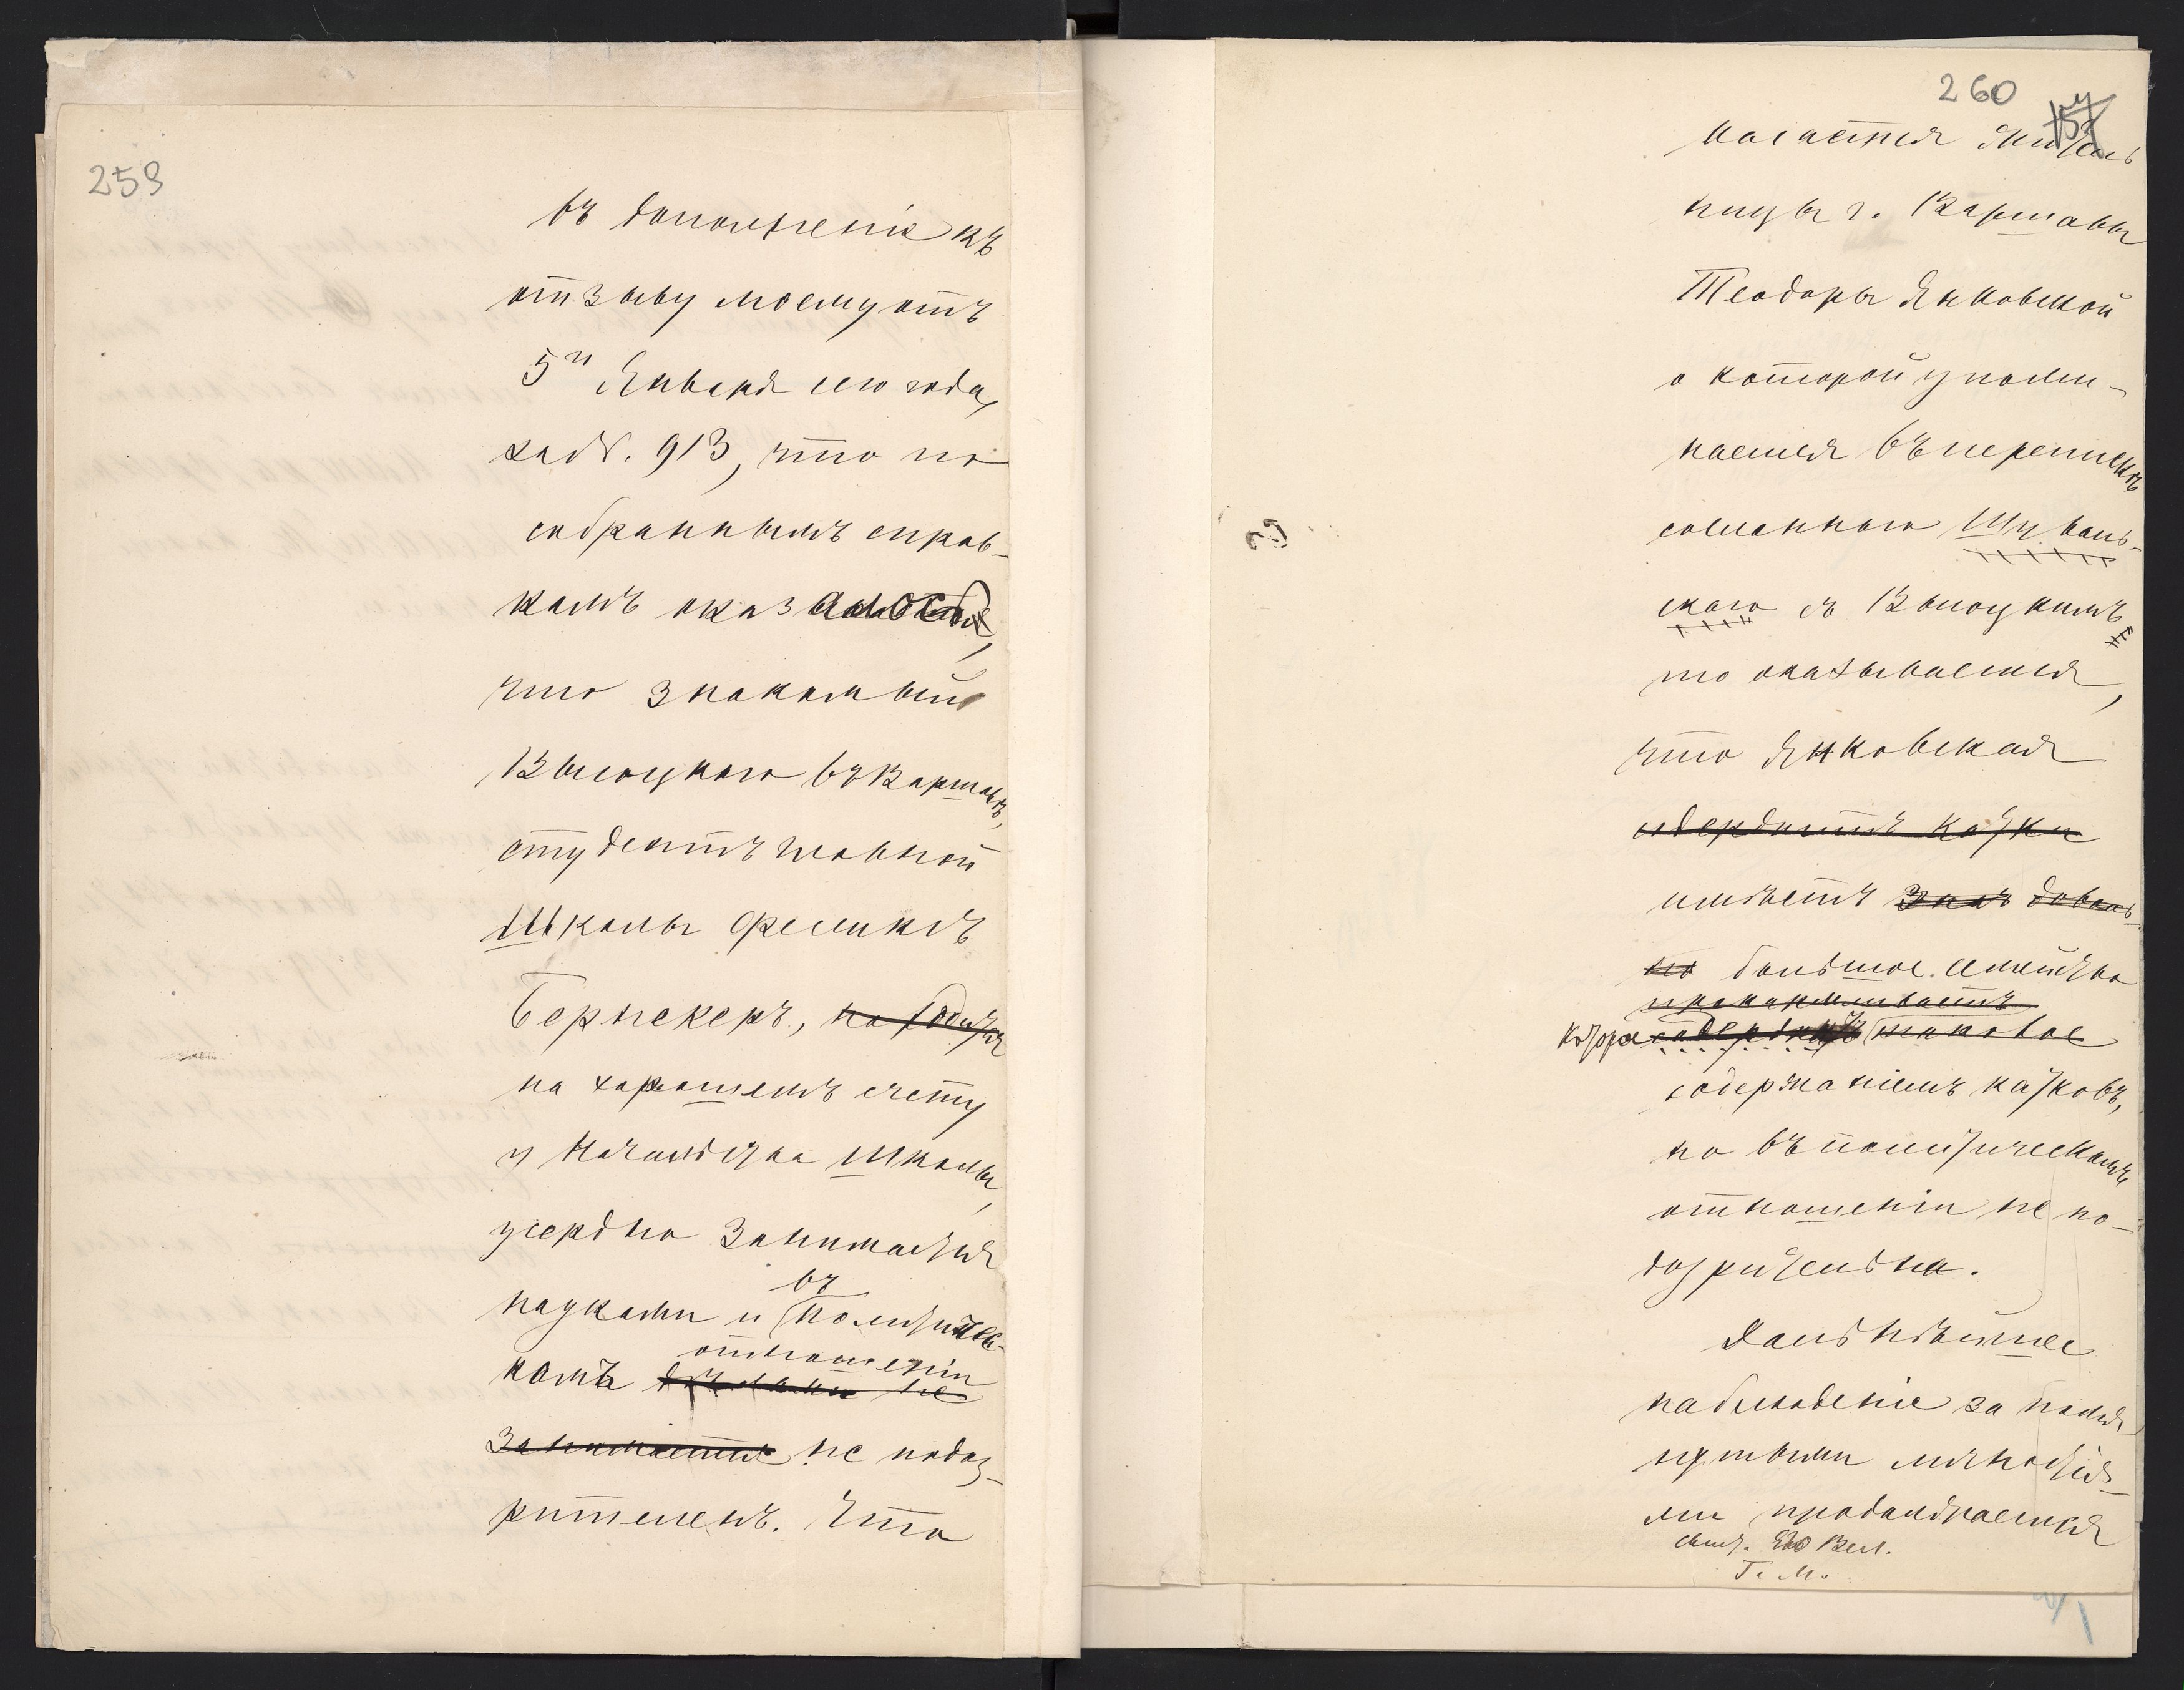 259
въ дополненіе къ
отзыву моему отъ
5го Января сего года,
за №. 913, что по
собраннымъ справ-
камъ оказалось,
что знакомый
Высоцкаго въ Варшавѣ,
студентъ главной
Школы Феликсъ
Бернекеръ,
на хорошемъ счету
у Начальства школы,
усердно занимается
науками и въ политичес-
комъ отношеніи
не подоз-
рителенъ. Что
260
касается житель
ницы г. Варшавы
Теодоры Янковской
о которой упоми-
нается въ перепискѣ
сосланнаго Шуваль-
скаго съ Высоцкимъ
то оказывается,
что Янковская
содержитъ
имѣетъ доволь-
но большое семейство
прокармливаетъ
содержаніемъ
но въ политическомъ
отношеніи не по-
дозрительна.
Дальнѣйшее
наблюденіе за помя-
нутыми личностя-
ми продолжается
Г. М.